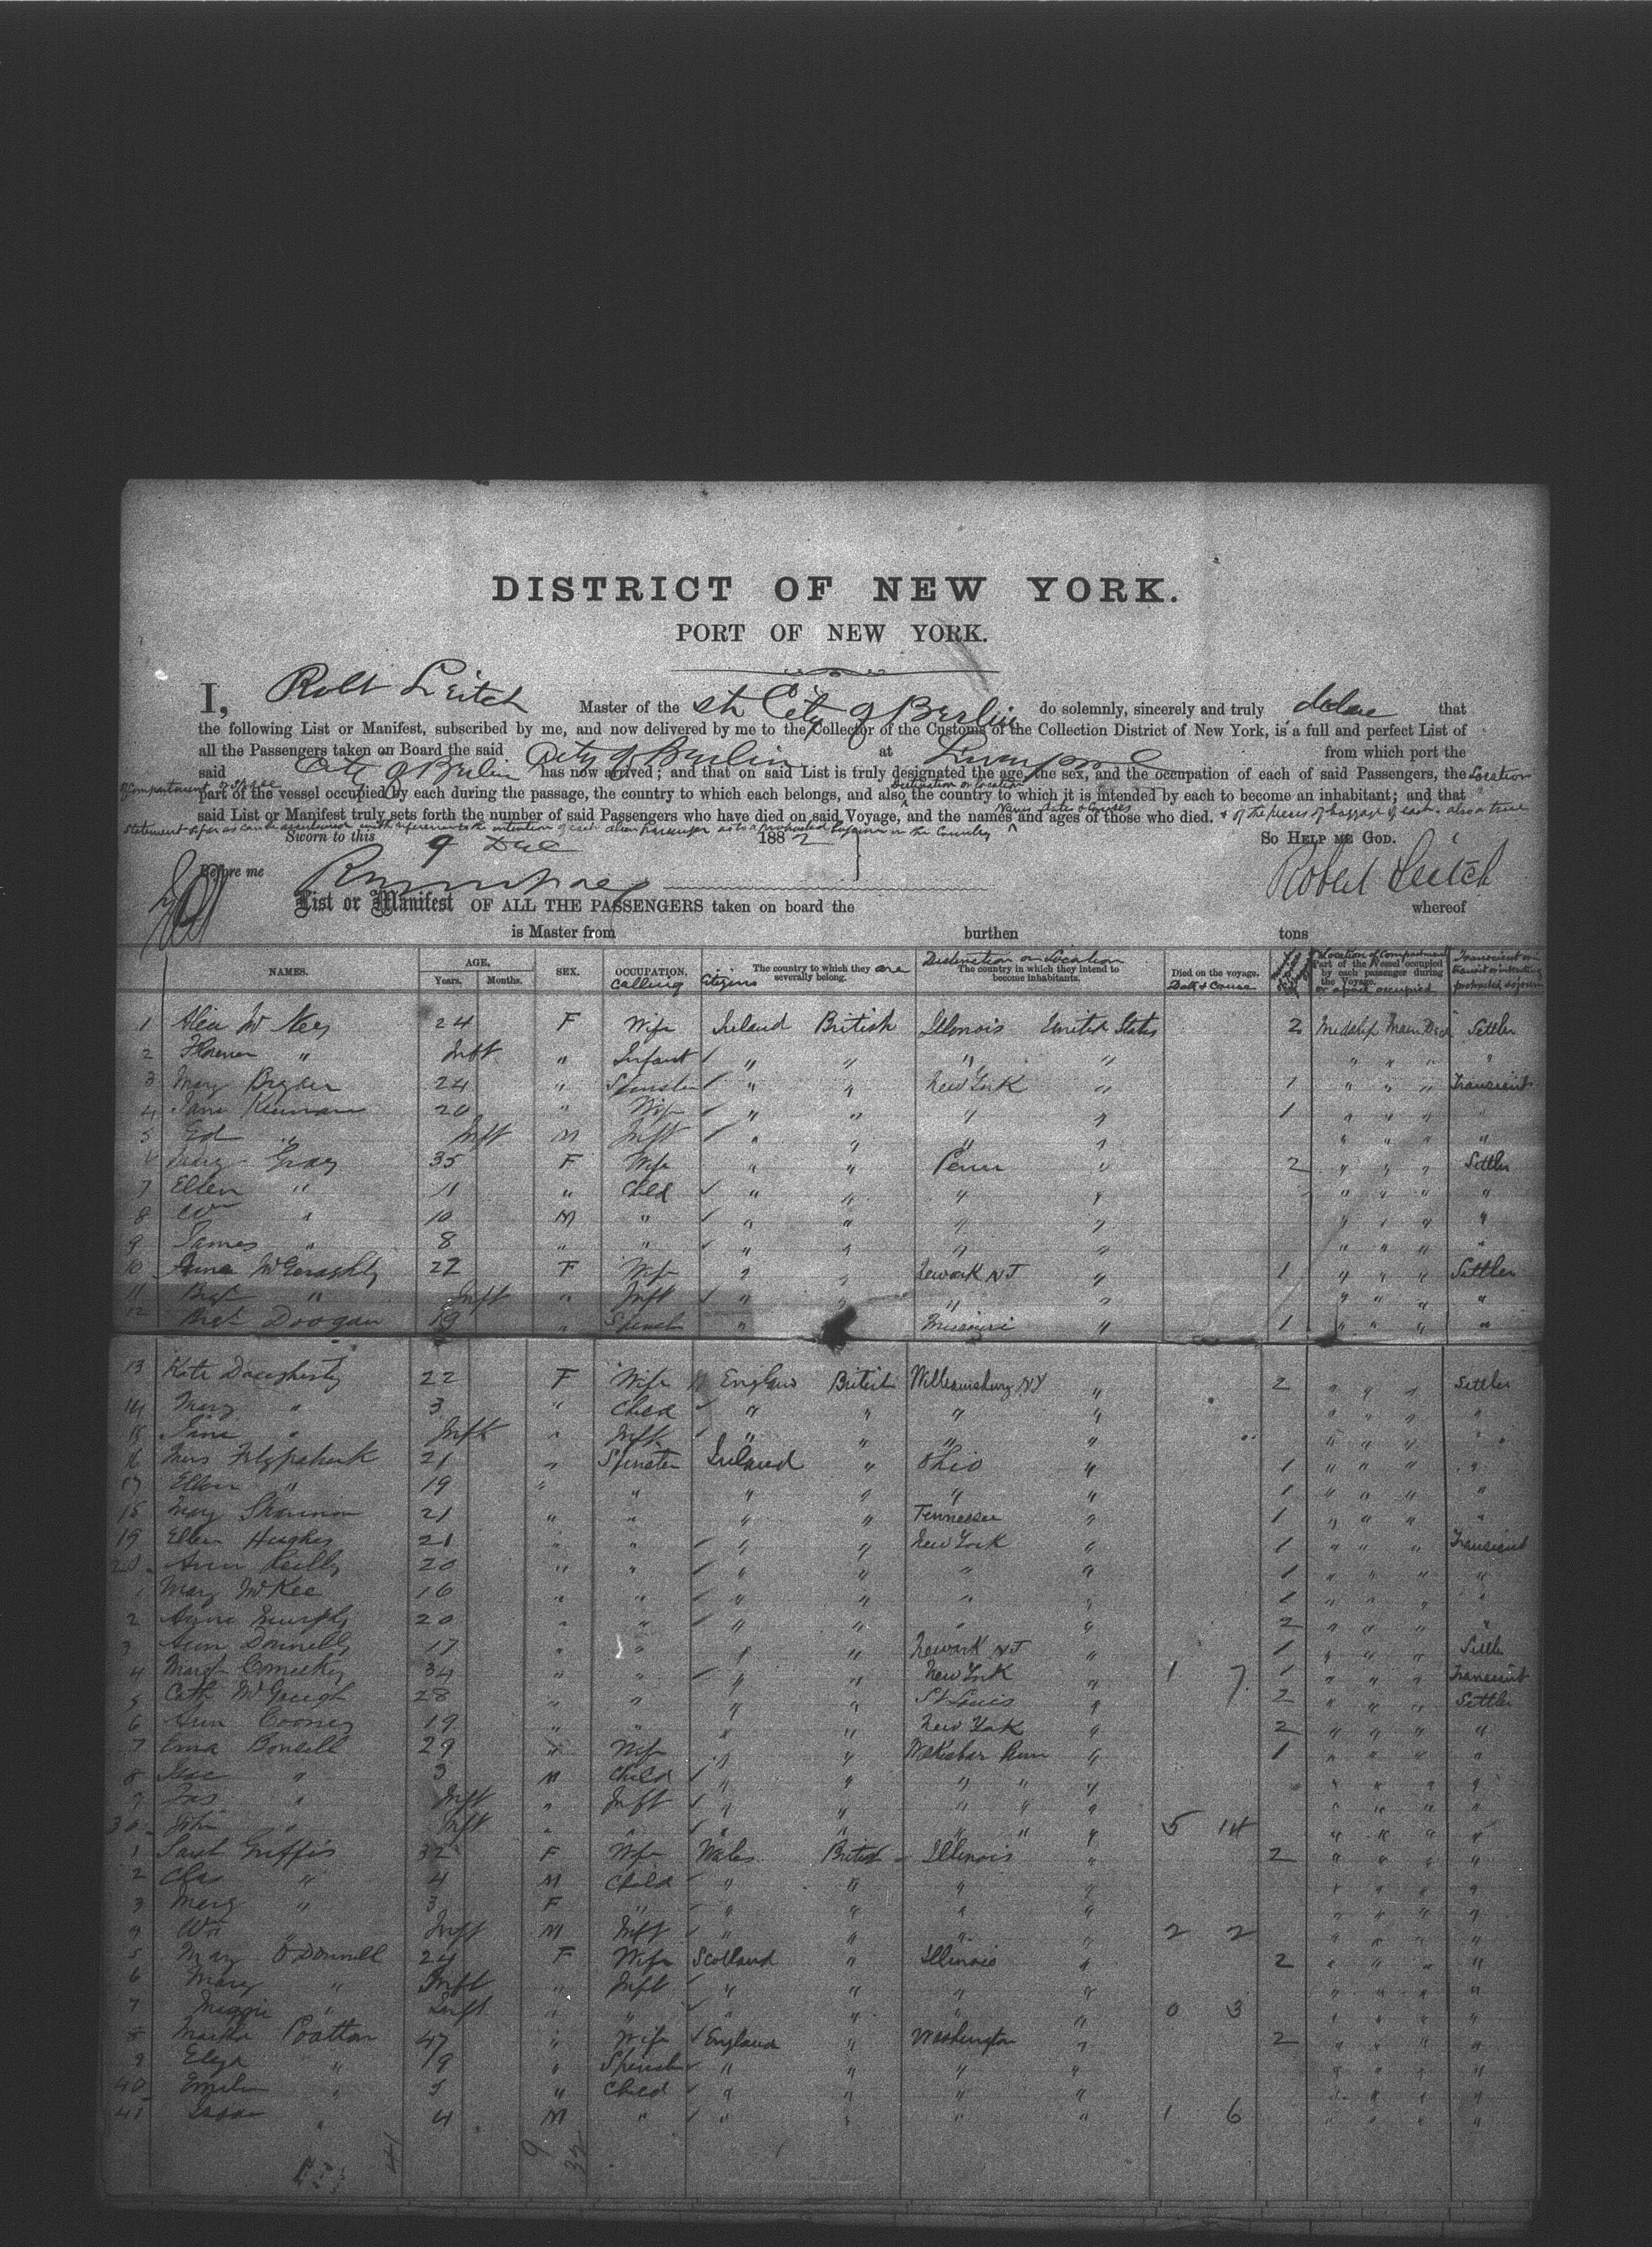 DISTRICT OF NEW YORK.
PORT OF NEW YORK.
I, Robt Leitch Master of the City of Berlin do solemnly, sincerely and truly declare that
the following List or Manifest, subscribed by me, and now delivered by me to the Collector of the Customs of the Collection District of New York, is a full and perfect List of
all the Passengers taken on Board the said City of Berlin at Liverpool from which port the
said City of Berlin has now arrived; and that on said List is truly designated the age, the sex, and the occupation of each of said Passengers, the Location
of Compartment or Space part of the vessel occupied by each during the passage, the country to which each belongs, and also Destination or Location the country to which it is intended by each to become an inhabitant; and that
said List or Manifest truly sets forth the number of said Passengers who have died on said Voyage, and the names and ages of those who died. & of the pieces of baggage of each. also a true
Statement so far as can be ascertained with reference to the intention of each alien passenger as to a protracted sojourn in the Country
Sworn to this 9 Dec 1882 So HELP ME GOD.
Before me Robert Leitch
List or Manifest OF ALL THE PASSENGERS taken on board the whereof
is Master from burthen tons
NAMES. AGE. Years. Months. SEX. OCCUPATION. Calling Citizens The country to which they are severally belong. Destination or Location The country in which they intend to become inhabitants. Died on the voyage. Date & Cause Location of Compartment Part of the Vessel occupied by each passenger during the Voyage. or space occupied
1 24 F Wife Ireland British Illinois United States 2 Midship Main Deck Settler
2 " Inft " Infant " " " " " " " "
3 Mary 24 " Spinster " " New York " 1 " " " Transient
4 20 " Wife " " " " 1 " " " "
5 " Inft M Inft " " " " " " " "
Mary Gray 35 F Wife " " Penn " 2 " " " Settler
7 Ellen " 11 " Child " " " " " " " "
8 Wm " 10 M " " " " " " " " "
9 James " 8 " " " " " " " " " "
10 McGeraghty 27 F Wife " " Newark NJ " 1 " " " Settler
11 " Inft " Inft " " " " " " " "
12 Brgt Doogan 19 " Spinst " " Missouri " 1 " " " "
13 Kate 22 F Wife England British Williamsburg NY " 2 " " " Settler
14 Mary " 3 " Child " " " " " " " "
15 Jane " Inft " Inft " " " " " " " "
16 Fitzpatrick 21 " Spinster Ireland " Ohio " 1 " " " "
17 Ellen " 19 " " " " " " 1 " " " "
18 Mary Shannon 21 " " " " Tennessee " 1 " " " "
19 Ellen Hughes 21 " " " " New York " 1 " " " Transient
20 Ann Reilly 20 " " " " " " 1 " " " "
1 Mary McKee 16 " " " " " " 1 " " " "
2 Murphy 20 " " " " " " 2 " " " "
3 Ann Donnelly 17 " " " " Newark NJ " 1 " " " Settler
4 Margt 34 " " " " New York " 1 7 1 " " " Transient
5 Cath 28 " " " " St Louis " 2 " " " Settler
6 Ann Cooney 19 " " " " New York " 2 " " " "
7 29 " Wife " " " 1 " " " "
8 " 3 M Child " " " " " " " " "
9 " Inft " Inft " " " " " " " " "
30 " Inft " " " " " " " 5 14 " " " "
1 Griffis 32 F Wife Wales British Illinois " 2 " " " "
2 Chas " 4 M Child " " " " " " " "
3 Mary " 3 F " " " " " " " " "
Wm " Inft M Inft " " " " 2 2 " " " "
5 Mary O'Donnell 24 F Wife Scotland " Illinois " 2 " " " "
6 Mary " Inft " Inft " " " " " " " "
7 Maggie " Inft " " " " " " 0 3 " " " "
8 Martha 47 " Wife England " Washington " 2 " " " "
9 Eliza " 19 " Spinst " " " " " " " "
40 " 5 " Child " " " " " " " "
41 " 4 M " " " " " 1 6 " " " "
41 9 32